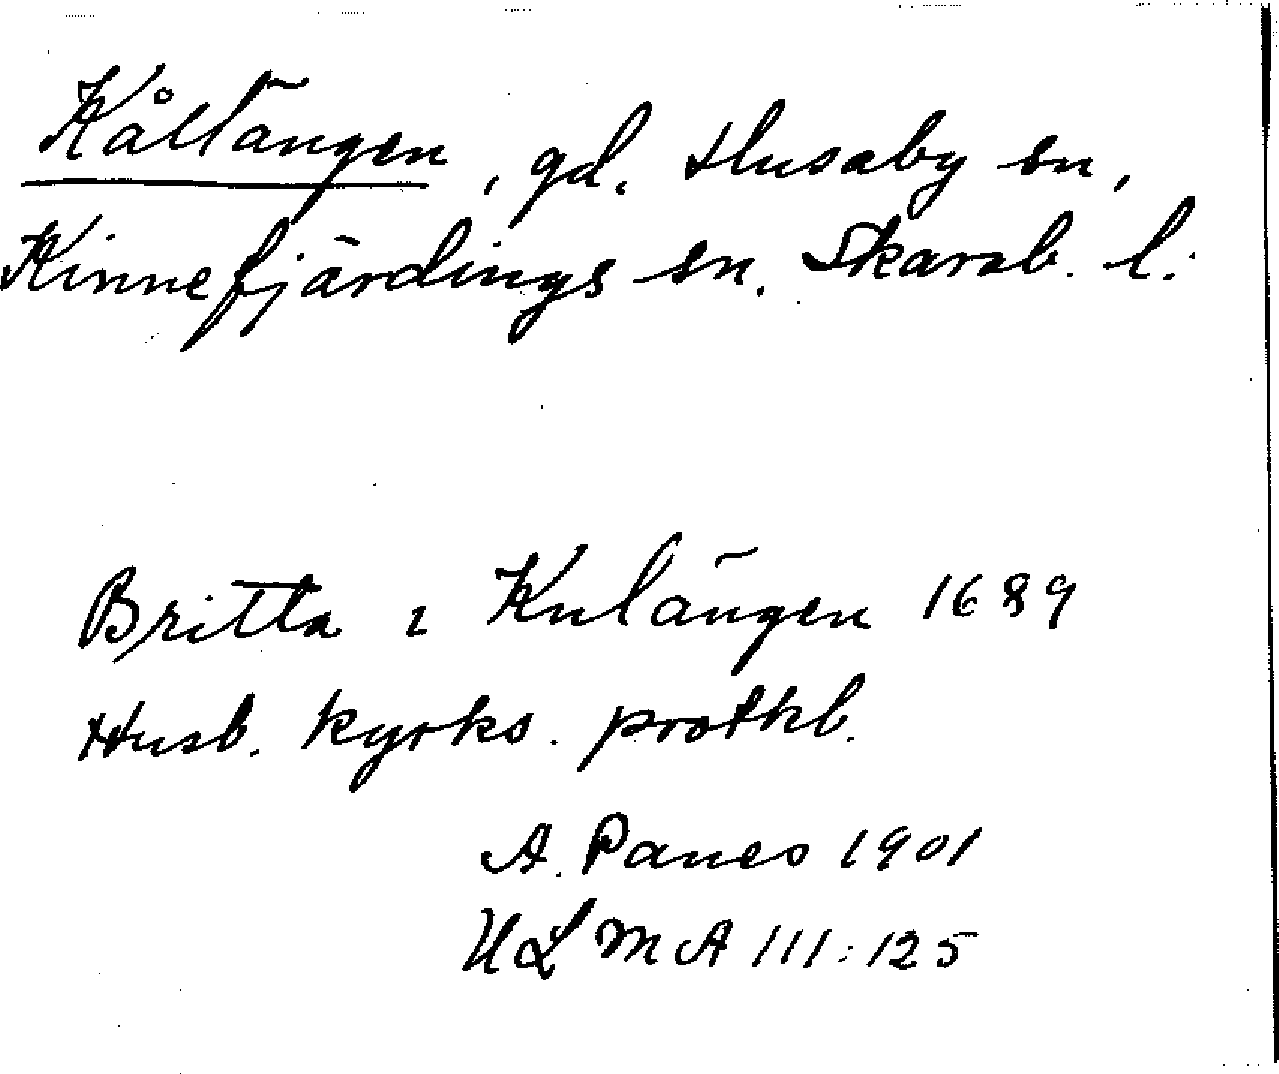 Kålängen, gd. Husaby sn,
Kinnefjärdings sn. Skarab. l.
Britta i Kulängen 1689
Husb. kyrks. protkb.
A. Panes 1901
ULMA 111:125